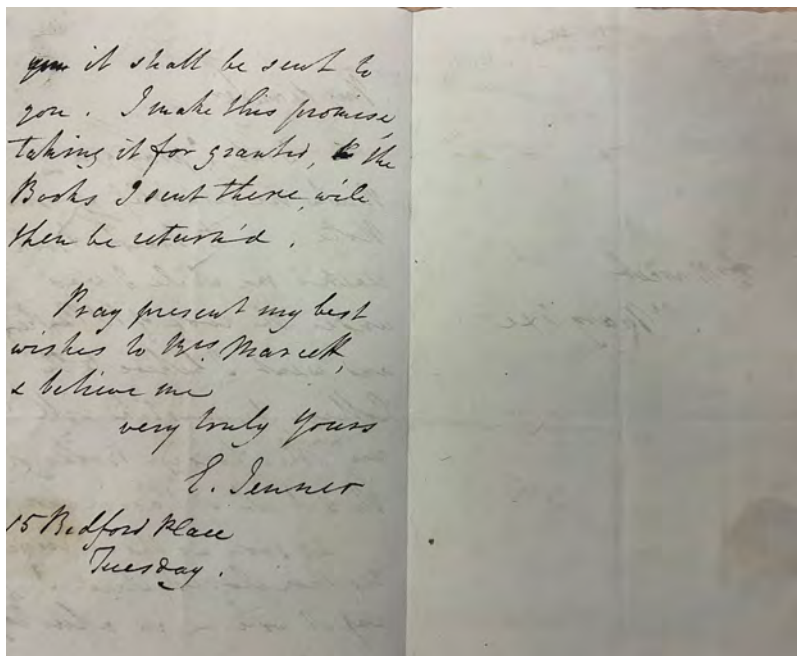 it shall be sent to
you. I make this promise,
taking it for granted, the
Books I sent there, will
then be return'd.
Pray present my best
wishes to Mrs. Marcett,
& believe me
very truly yours
E. Jenner
15 Bedford Place
Tuesday.